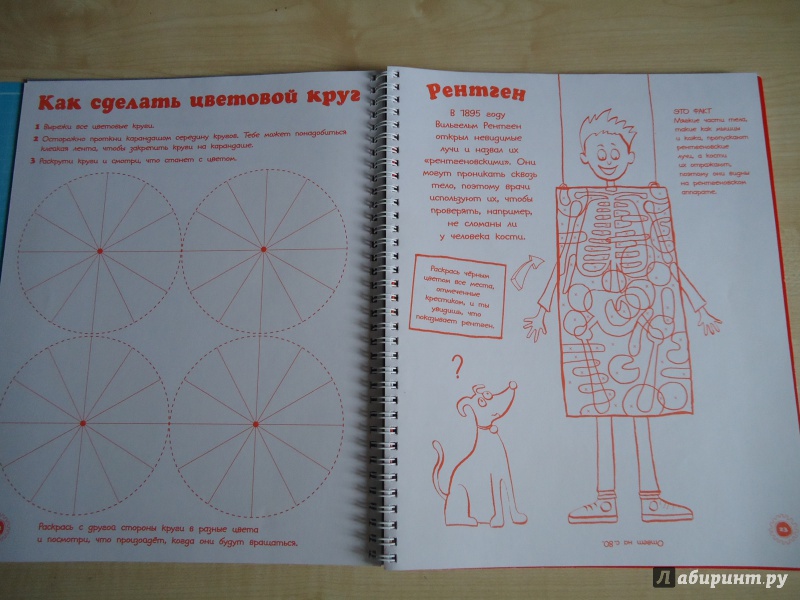 Как сделать цветовой круг
1 Вырежи все цветовые круги.
2 Осторожно проткни карандашом середину кругов. Тебе может понадобиться
клейкая лента, чтобы закрепить круги на карандаше.
3 Раскрути круги и смотри, что станет с цветом.
Раскрась с другой стороны круги в разные цвета
и посмотри, что произойдёт, когда они будут вращаться.
Рентген
В 1895 году
Вильгельм Рентген
открыл невидимые
лучи и назвал их
«рентгеновскими». Они
могут проникать сквозь
тело, поэтому врачи
используют их, чтобы
проверять, например,
не сломаны ли
у человека кости.
Раскрась чёрным
цветом все места,
отмеченные
крестиком, и ты
увидишь, что
показывает рентген.
?
ЭТО ФАКТ
Мягкие части тела,
такие как мышцы
и кожа, пропускают
рентгеновские
лучи, а кости
их отражают,
поэтому они видны
на рентгеновском
аппарате.
Ответ на с. 80.
Лабиринт.ру